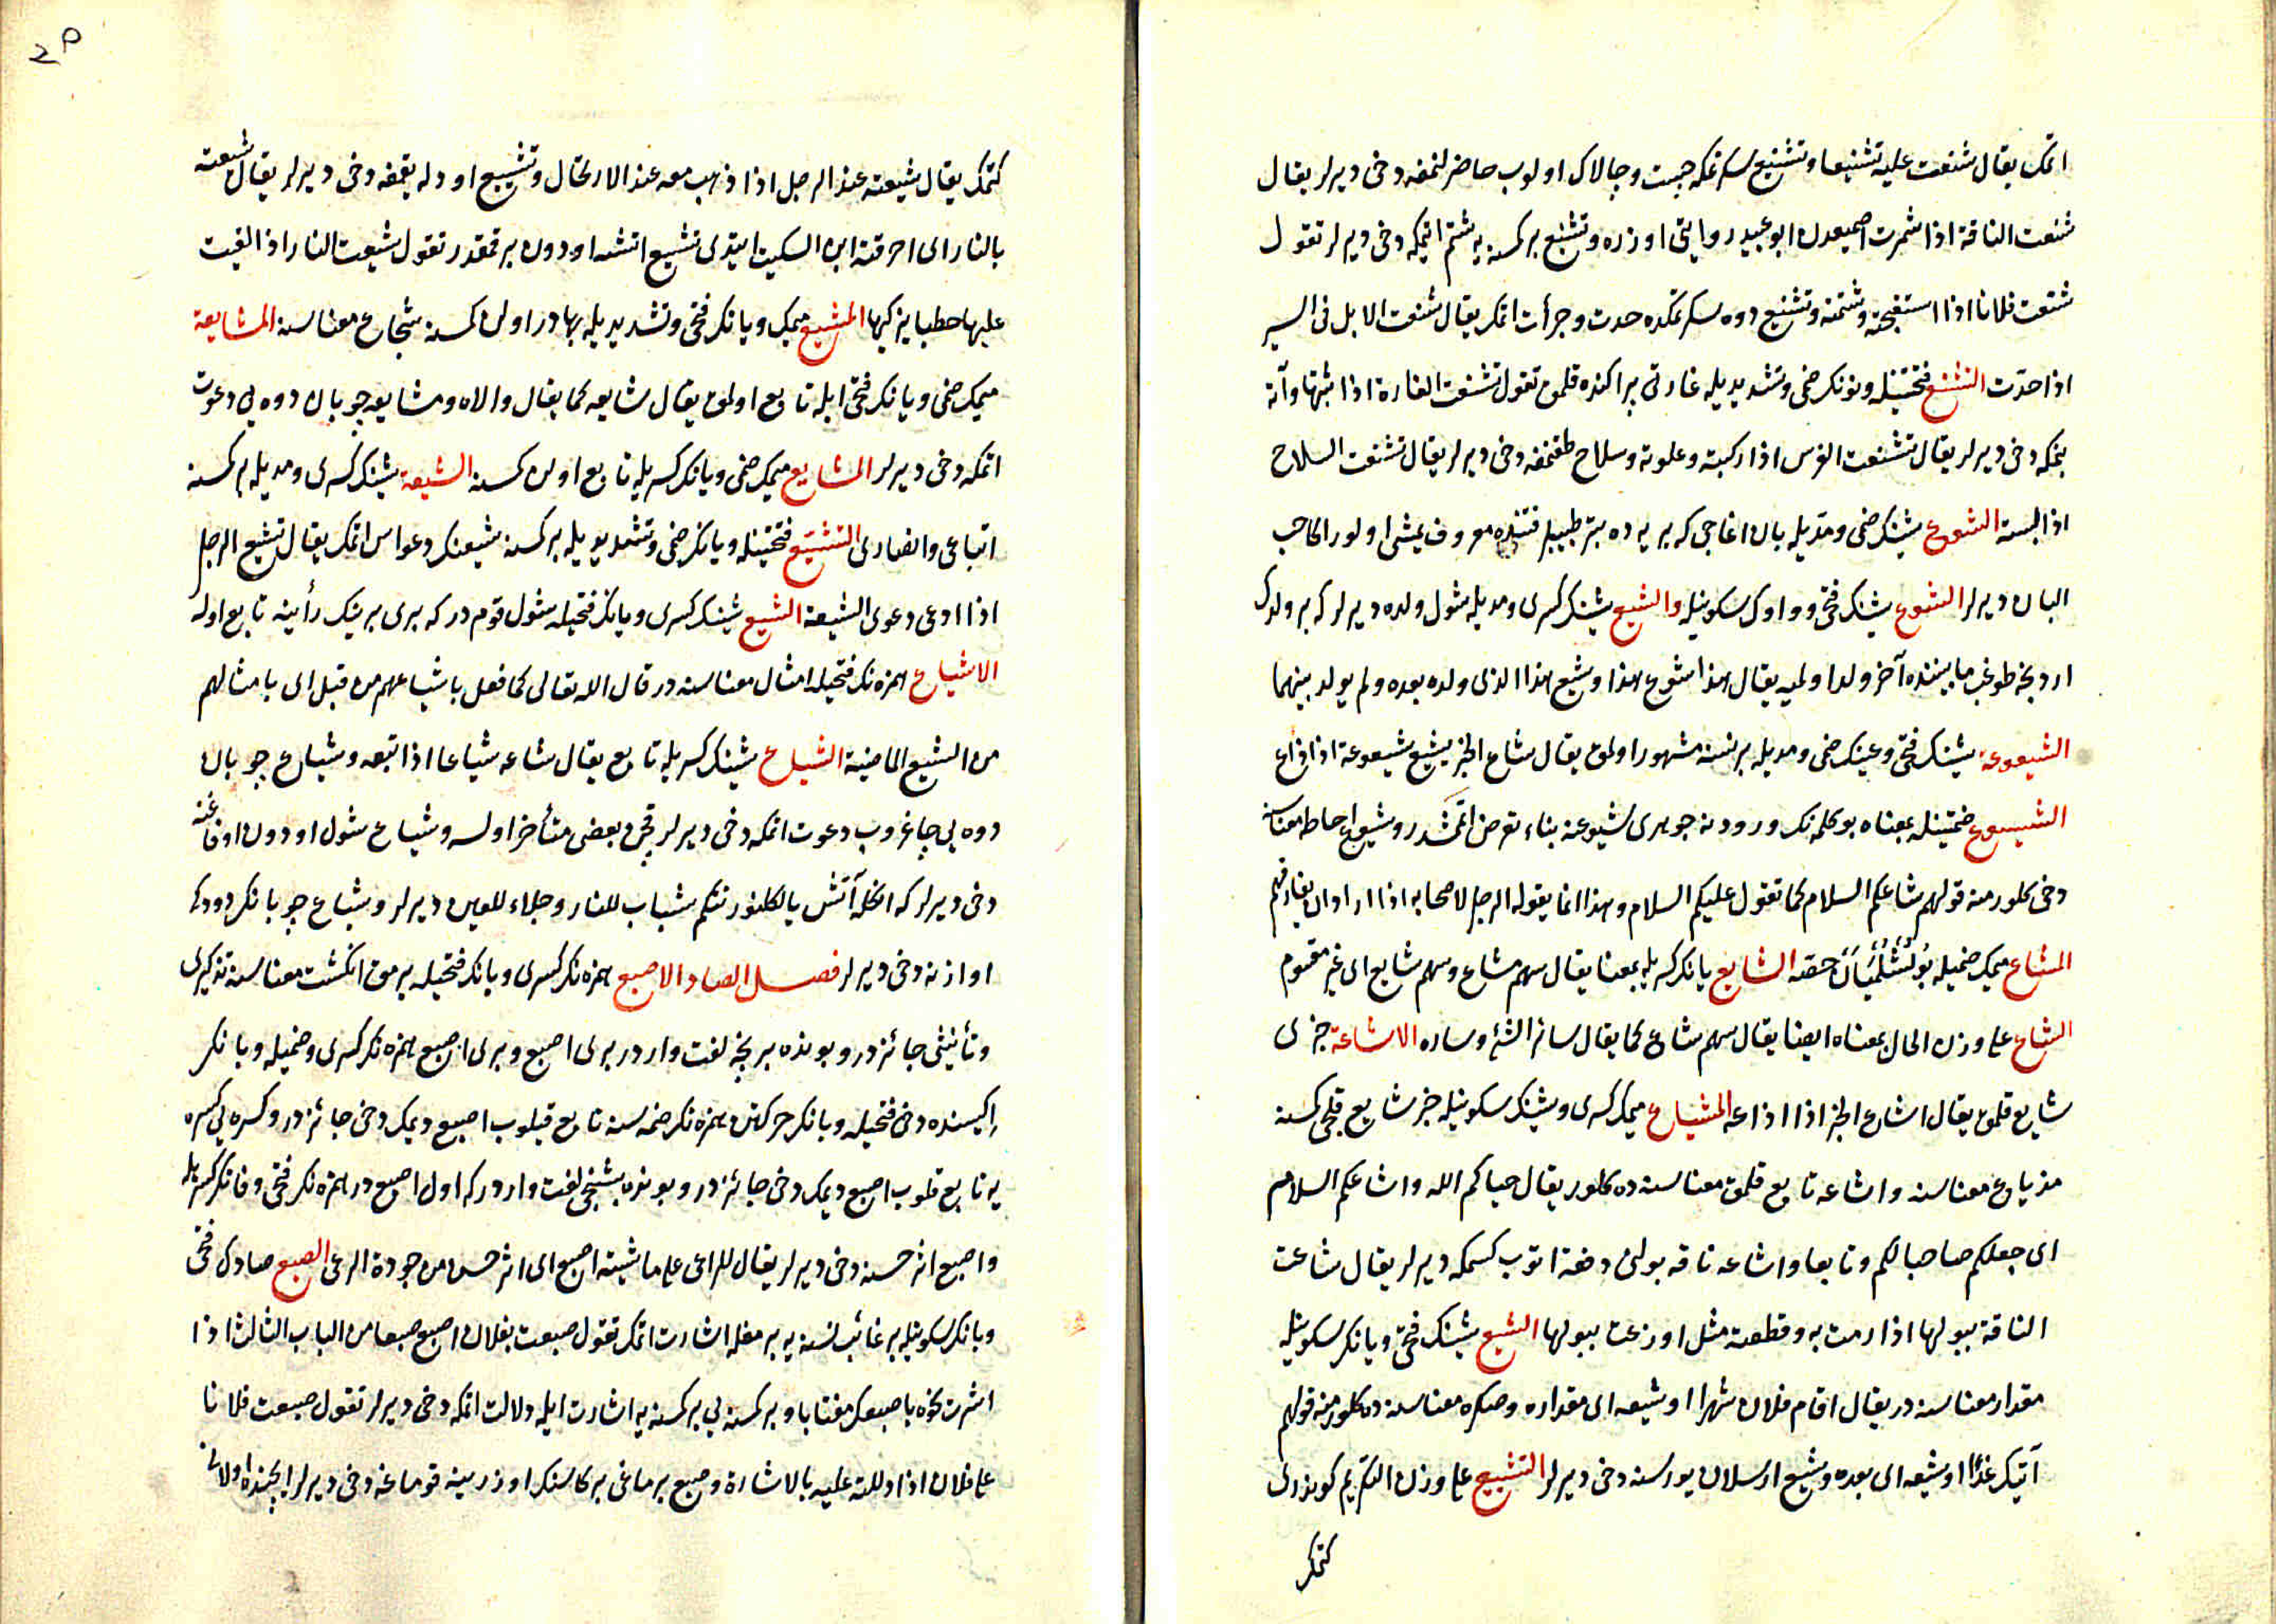 اتمك يقال شنعت عليه تشنيعا وتشنيع سكرتمكه جست وجالاك اولوب حاضرلنمغه دخى ديرلر يقال
شنعت الناقة اذا شمرت اصمعيدن ابو عبيد روايتى اوزره وتشنيع بر كمسنه يه شتم اتمكه دخى ديرلر تقول
شنعت فلانا اذا استقبحته وشتمته وتشنيع دوه سكرتمكده حدت وجرأت اتمك يقال شنعت الابل فى السير
اذا جدّت التشنع فتحتينله ونونك ضمى وتشديديله غارتى پراكنده قلمق تقول تشنعت الغارة اذا بثثتها وآته
بنمكه دخى ديرلر يقال تشنعت الفرس اذا ركبته وعلوته وسلاح طقنمغه دخى ديرلر يقال تشنعت السلاح
اذا لبسته الشوع شينك ضمى ومدّيله بان اغاجى كه بريه ده بتر طبيبلر قتنده معروف يمشى اولور الحاجب
البان ديرلر الشوع شينك فتحى وواوك سكونيله والشيع شينك كسرى ومديله شول ولده ديرلر كه بر ولدك
اردنجه طوغب مابيننده آخر ولد اولميه يقال هذا شوع هذا وشيع هذا الذى ولد بعده ولم يولد بينهما
الشيعوعة شينك فتحى وعينك ضمى ومديله بر نسنه مشهور اولمق يقال شاع الخبر يشيع شيعوعة اذا ذاع
الشيوع ضمتينله بمعناه بو كلمه نك ورودنه جوهرى شيوعنه بناء تعرض اتممشدر وشيوع احاطه معناسنه
دخى كلور منه قولهم شاعكم السلام كما تقول عليكم السلام وهذا انما يقوله الرجل لاصحابه اذا اراد ان يفارقهم
المشاع ميمك ضميله حصّه الشايع يانك كسريله بمعنا يقال سهم مشاع وسهم شايع اى غير مقسوم
الشاع على وزن الحال بمعناه ايضا يقال سهم شاع كما يقال سائر الشئ وساره الاشاعة خبرى
شايع قلمق يقال اشاع الخبر اذا اذاعه المشياع ميمك كسرى وشينك سكونيله خبر شايع قلجى كمسنه
مذياع معناسنه واشاعه تابع قلمق معناسنه ده كلور يقال حياكم الله واشاعكم السلام
اى جعله صاحبا لكم وتابعا واشاعه ناقه بولنى دفعة اتوب كسمكه ديرلر يقال شاعت
الناقة ببولها اذا رمت به وقطعته مثل اوزعت ببولها الشيع شينك فتحى ويانك سكونيله
مقدار معناسنه در يقال اقام فلان شهرا او شيعه اى مقداره وصكره معناسنه ده كلور منه قولهم
آتيك غدًا او شيعه اى بعده وشيع ارسلان يورسنه دخى ديرلر التشييع على وزن التكريم كوندرى
كتمك
كتمك يقال شيعته عند الرحيل اذا ذهب معه عند الارتحال وتشييع اودله يقمغه دخى ديرلر يقال شيعته
بالنار اى احرقته ابن السكيت ايتدى تشييع اتشه اودون برقمقدر تقول شيعت النار اذا القيت
عليها حطبا يذكيها المشيع ميمك ويانك فتحى وتشديديله بهادر اولن كمسنه شجاع معناسنه المشايعة
ميمك ضمى ويانك فتحى ايله تابع اولمق يقال شايعه كما يقال والاه ومشايعه چوبان دوه يى دعوت
اتمكه دخى ديرلر المشايع ميمك ضمى ويانك كسريله تابع اولن كمسنه الشيعة شينك كسرى ومديله بر كمسنه
اتباعى وانصارى التشيع فتحتينله ويانك ضمى وتشديديله بر كمسنه شيعنك دعواسن اتمك يقال تشيع الرجل
اذا ادعى دعوى الشيعة الشيع شينك كسرى ويانك فتحيله شول قومدر كه برى برينك رأينه تابع اوله
الاشياع همزه نك فتحيله امثال معناسنه در قال الله تعالى كما فعل باشياعهم من قبل اى بامثالهم
من الشيع الماضية الشياع شينك كسريله تابع يقال شاعه شياعا اذا تبعه وشياع چوبان
دوه يى چاغروب دعوت اتمكه دخى ديرلر قچن بعضى متأخر اولسه وشياع شول اودون اوفاغنه
دخى ديرلر كه انكله آتش يالكلنور نتكم شباب للنار وجلاء للعين ديرلر وشياع چوبانك دودك
اوازنه دخى ديرلر فصل الصاد الاصبع همزه نك كسرى وبانك فتحيله برمق انكشت معناسنه تذكيرى
وتأنيثى جائزدر وبونده بر نچه لغت واردر برى اصبع وبرى اصبع همزه نك كسرى وضميله وبانك
ايكيسنده دخى فتحيله وبانك حركتن همزه نك ضمه سنه تابع قيلوب اصبع ديمك دخى جائزدر وكسره يى كسره
يه تابع قلوب اصبع ديمك دخى جائزدر وبونده بشنجى لغت واردر كه اول اصبع در همزه نك فتحى وبانك كسريله
واصبع اثر حسنه دخى ديرلر يقال للراعى على ماشيته اصبع اى اثر حسن من جودة الرعى الصبع صادك فتحى
وبانك سكونيله بر غائب نسنه يه برمغله اشارت اتمك تقول صبعت بفلان اصبع صبعا من الباب الثالث اذا
اشرت نحوه باصبعك مغتابا وبر كمسنه يى بر كمسنه يه اشارت ايله دلالت اتمكه دخى ديرلر تقول صبعت فلانا
على فلان اذا دللته عليه بالاشارة وصبع برماغى بر كاسنك اوزرينه قوماغه دخى ديرلر ايچنده اولانى